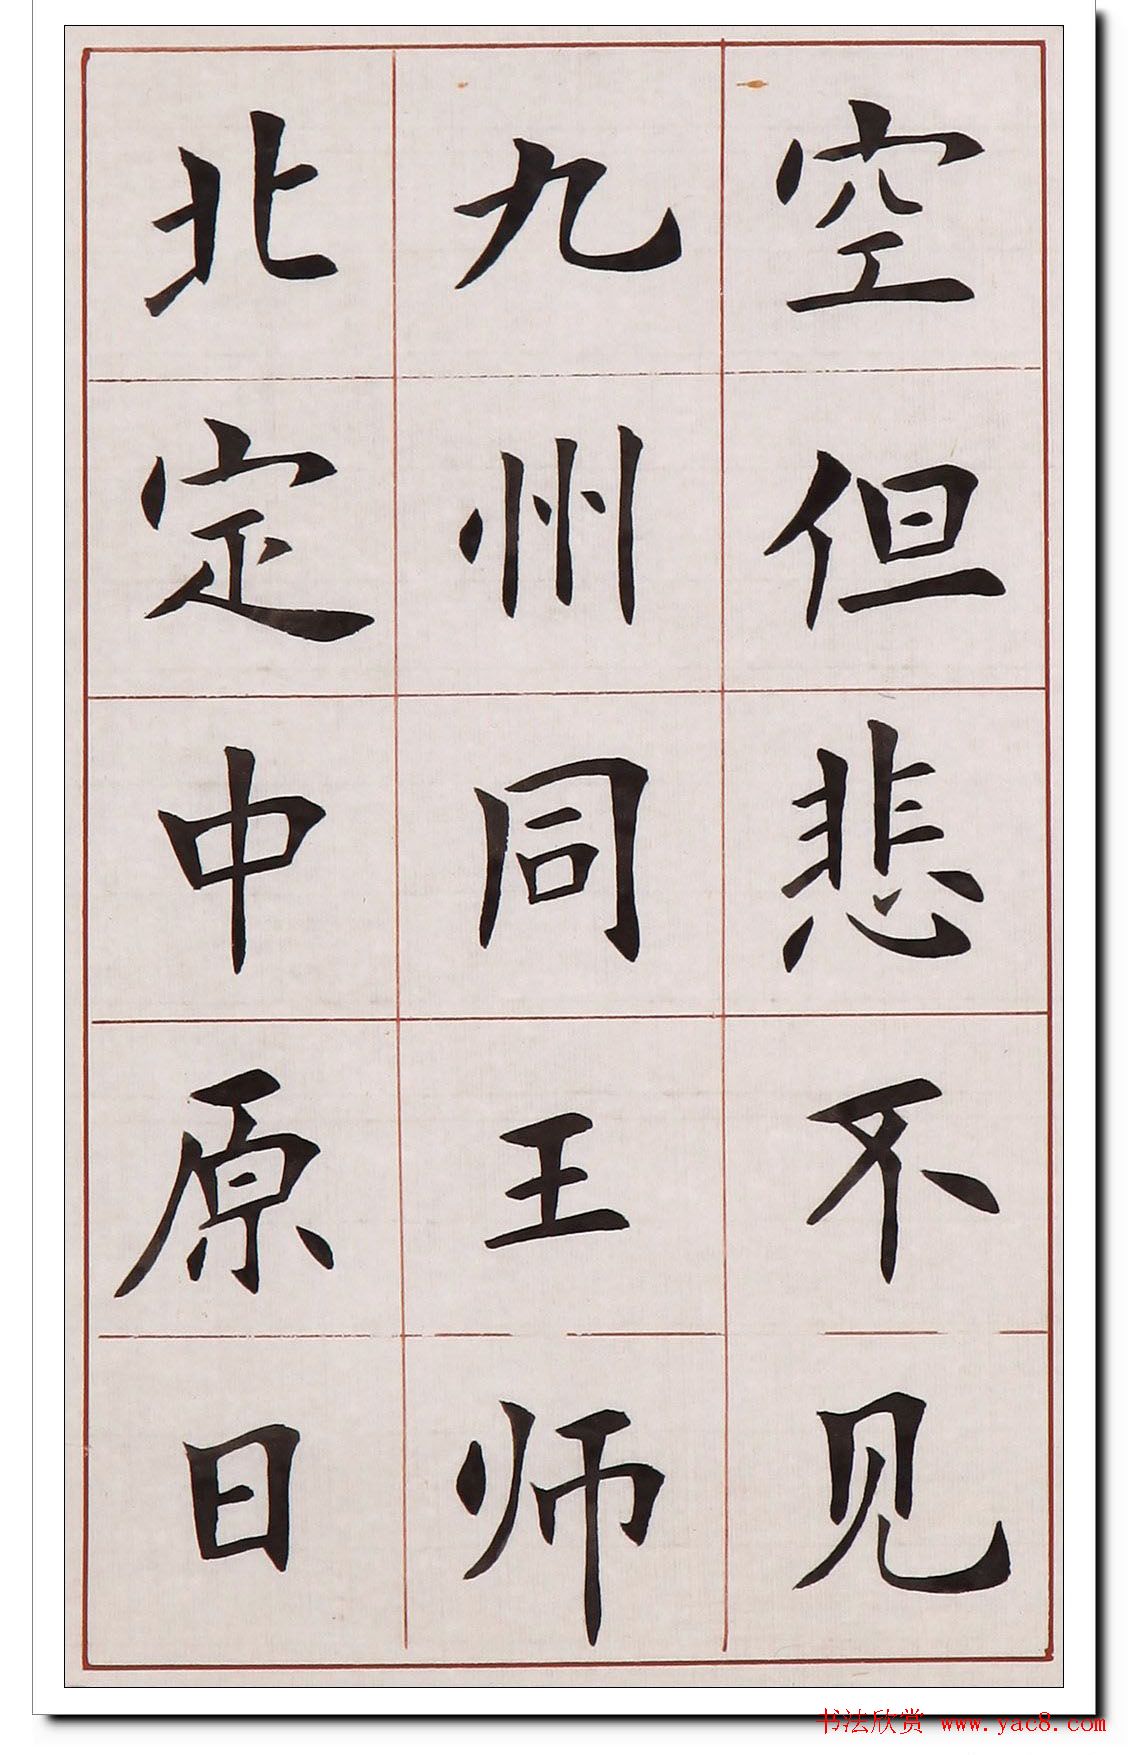 空但悲不见
九州同王师
北定中原日
书法欣赏 www.yac8.com